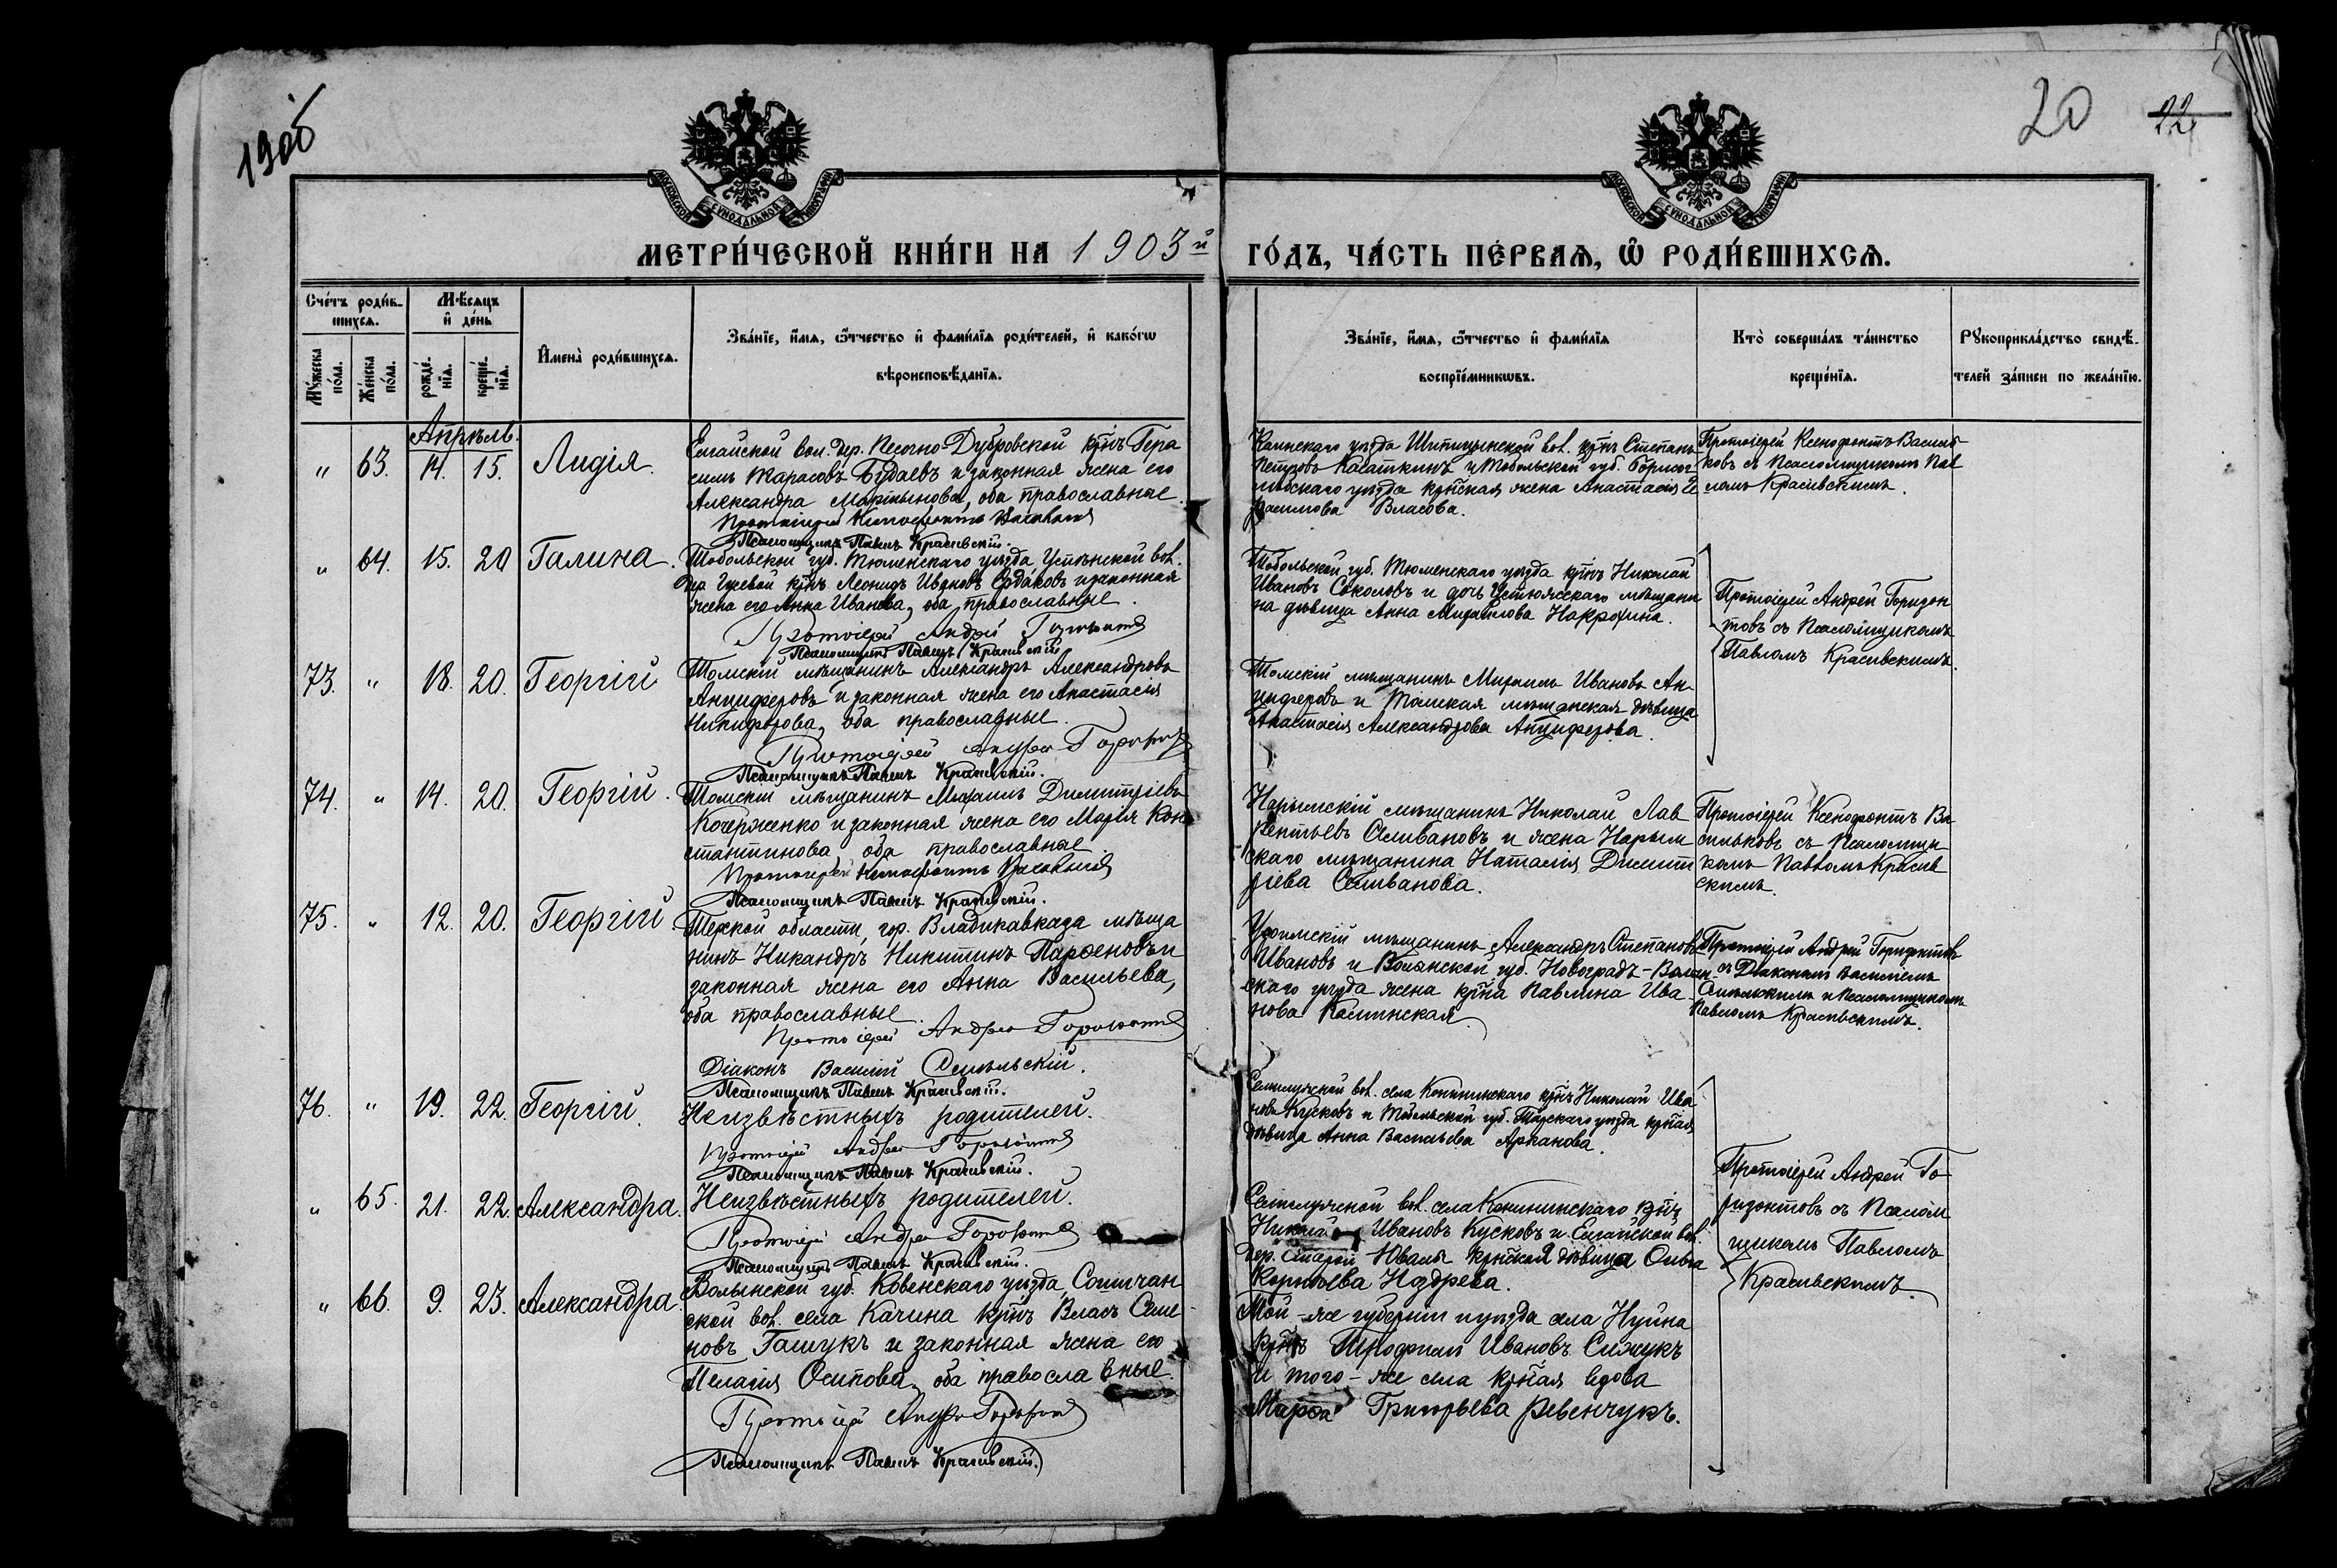 1905
20
22
МОСКОВСКОЙ СУНОДАЛЬНОЙ ТИПОГРАФІИ
МОСКОВСКОЙ СУНОДАЛЬНОЙ ТИПОГРАФІИ
МЕТРИ́ЧЕСКОЙ КНИ́ГИ НА 1903й ГО́ДЪ, ЧА́СТЬ ПЕ́РВАѦ, Ѡ҆ РОДИ́ВШИХСѦ.
Сче́тъ роди́в-
шихсѧ.
Мѣ́сѧцъ
и҆ де́нь
Мꙋ́жеска
по́ла.
Же́нска
по́ла.
рожде́-
нїѧ.
креще́-
нїѧ.
И҆мена̀ роди́вшихсѧ.
Зва́нїе, и҆́мѧ, ѻ҆́тчество и҆ фами́лїѧ роди́телей, и҆ како́гѡ
вѣроисповѣ́данїѧ.
Зва́нїе, и҆́мѧ, ѻ҆́тчество и҆ фами́лїѧ
воспрїе́мникѡвъ.
Кто̀ соверша́лъ та́инство
креще́нїѧ.
Рꙋкоприкла́дство свидѣ́-
телей за́писи по жела́нїю.
Апрѣль.
„ 63. 14. 15. Лидія.
Елгайской вол. дер. Песочно-Дубровской крн̃ъ Гера
симъ Тарасовъ Будаевъ и законная жена его
Александра Мартынова, оба православные.
Протоіерей Ксенофонтъ Васильковъ
Псаломщикъ Павелъ Красивскій.
Каинскаго уѣзда Шипицынской вол. крн̃ъ Степанъ
Петровъ Касаткинъ и Тобольской губ.
уѣзда крн̃ская жена Анастасія Ге
расимова Власова.
Протоіерей Ксенофонтъ Василь-
ковъ съ Псаломщикомъ Пав
ломъ Красивскимъ.
„ 64. 15. 20 Галина.
Тобольской губ. Тюменскаго уѣзда, Успенской вол.
дер. Гусевой крн̃ъ Леонидъ Ивановъ Судаковъ и законная
жена его Анна Иванова, оба православные.
Протоіерей Андрей Горизонтовъ
Псаломщикъ Павелъ Красивскій
Тобольской губ. Тюменскаго уѣзда крн̃ъ Николай
Ивановъ Соколовъ и дочь Устюжскаго мѣщани
на дѣвица Анна Михайлова Накрохина.
Протоіерей Андрей Горизон
товъ съ Псаломщикомъ
Павломъ Красивскимъ.
73. „ 18. 20. Георгій
Томскій мѣщанинъ Александръ Александровъ
Анциферовъ и законная жена его Анастасія
Никифорова, оба православные.
Протоіерей Андрей Горизонтовъ
Псаломщикъ Павелъ Красивскій.
Томскій мѣщанинъ Михаилъ Ивановъ Ан-
циферовъ и Томская мѣщанская дѣвица
Анастасія Александрова Анциферова.
74. „ 14. 20. Георгій.
Томскій мѣщанинъ Михаилъ Димитріевъ
Кочерженко и законная жена его Марія Кон
стантинова оба православные.
Протоіерей Ксенофонтъ Васильковъ
Псаломщикъ Павелъ Красивскій.
Нарымскій мѣщанинъ Николай Лав
рентьевъ Селивановъ и жена Нарым
скаго мѣщанина Наталія Димит
ріева Селиванова.
Протоіерей Ксенофонтъ Ва
сильковъ съ Псаломщи
комъ Павломъ Красив
скимъ.
75. „ 12. 20. Георгій.
Терской области, гор. Владикавказа мѣща
нинъ Никандръ Никитинъ Парѳеновъ и
законная жена его Анна Васильева,
оба православные.
Протоіерей Андрей Горизонтовъ
Діаконъ Василій
Псаломщикъ Павелъ Красивскій.
Уфимскій мѣщанинъ Александръ Степановъ
Ивановъ и Волынской губ. Новоградъ-Волын-
скаго уѣзда жена крн̃на Павлина Ива
нова Калинская.
Протоіерей Андрей Горизонтовъ
съ Діакономъ Василіемъ
и Псаломщикомъ
Павломъ Красивскимъ.
76. „ 19. 22. Георгій.
Неизвѣстныхъ родителей.
Протоіерей Андрей Горизонтовъ
Псаломщикъ Павелъ Красивскій.
Семилужной вол. села Конининскаго крн̃ъ Николай Ива
новъ Кусковъ и Тобольской губ. Тарскаго уѣзда крн̃ая
дѣвица Анна Васильева Арканова.
Протоіерей Андрей Го-
ризонтовъ съ Псалом
щикомъ Павломъ
Красивскимъ.
„ 65. 21. 22. Александра.
Неизвѣстныхъ родителей.
Протоіерей Андрей Горизонтовъ
Псаломщикъ Павелъ Красивскій.
Семилужной вол. села Конининскаго крн̃ъ
Николай Ивановъ Кусковъ и Елгайской вол.
дер. Старой Ювалы крн̃ская дѣвица Ольга
Корнѣева Ноздрева.
„ 66. 9. 23. Александра.
Волынской губ. Ковенскаго уѣзда,
ской вол. села Качина крн̃ъ Власъ Семе-
новъ Гашукъ и законная жена его
Пелагія Осипова, оба православные.
Протоіерей Андрей Горизонтовъ
Псаломщикъ Павелъ Красивскій.
Той-же губерніи и уѣзда села Нуйна
крн̃ъ Трофимъ Ивановъ Сижукъ
и того-же села крн̃ая вдова
Марѳа Григорьева Ревенчукъ.